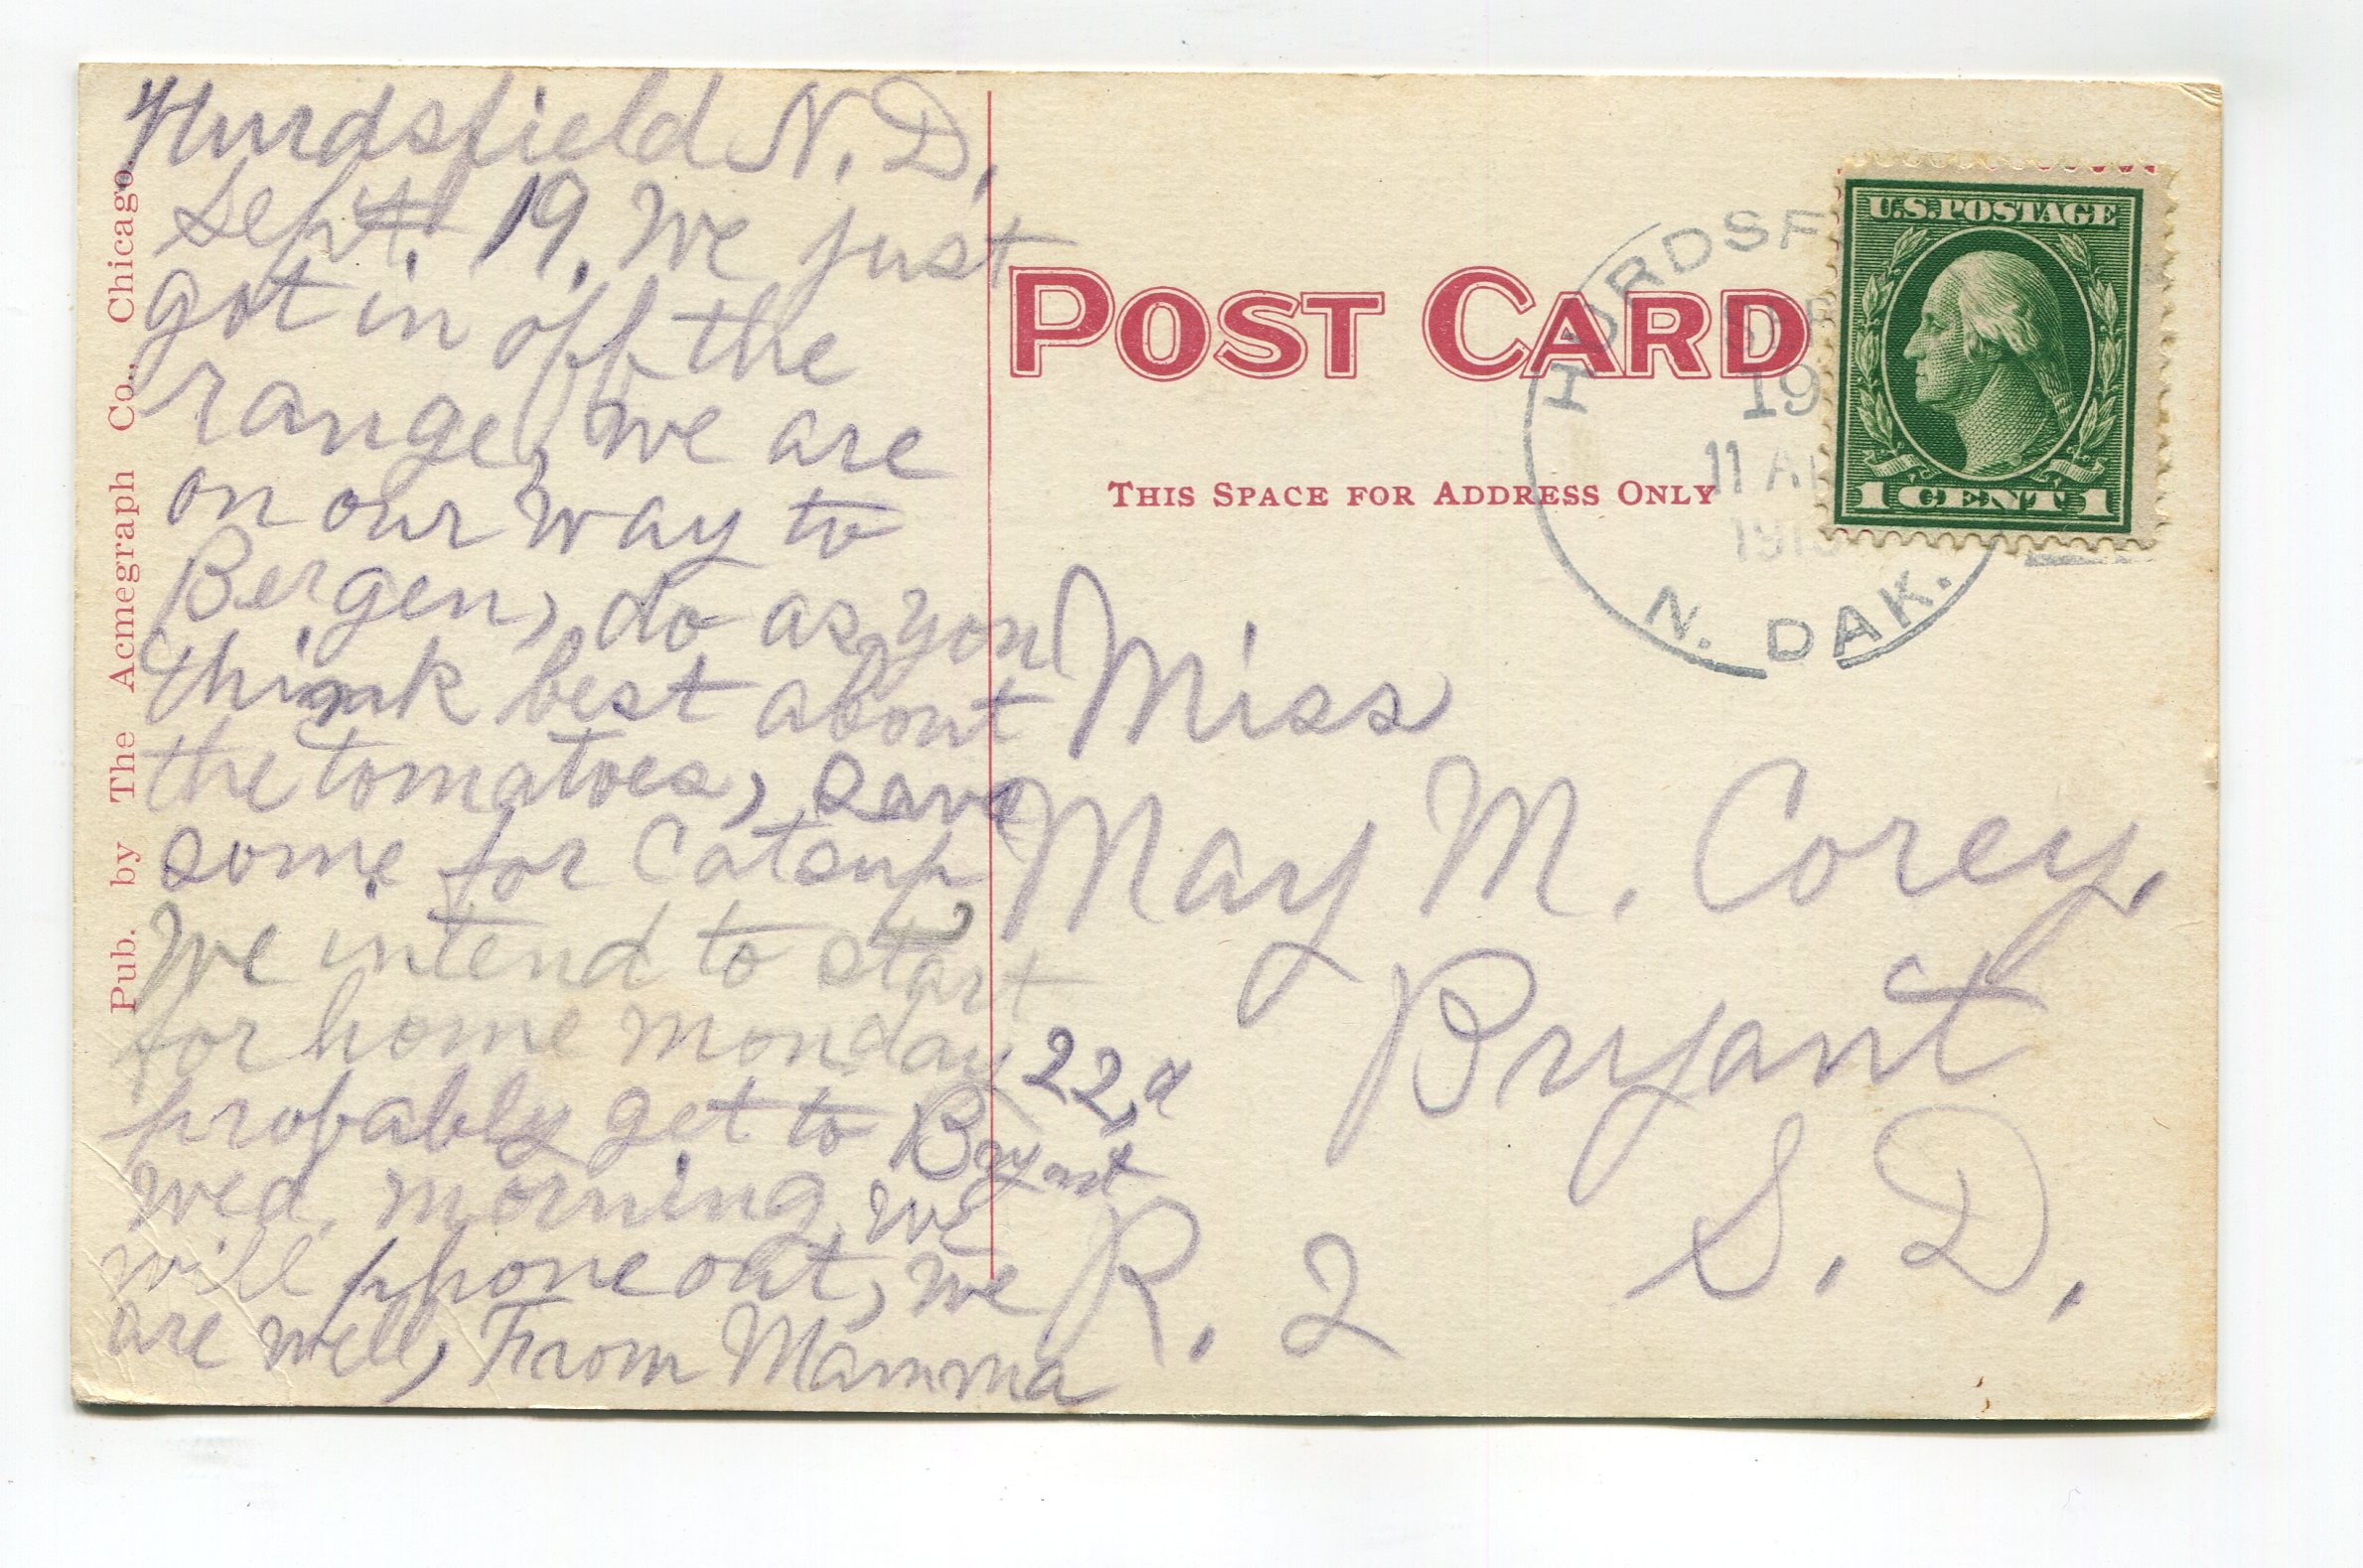 Hurdsfield N. D.
Sept. 19. We just
got in off the
range, we are
on our way to
Bergen, do as you
think best about
the tomatoes, save
some for Catsup
We intend to start
for home Monday 22,d
probably get to Bryant
Wed. morning we
will phone out, we
are well, From Mamma
Pub. by The Acmegraph Co., Chicago.
POST CARD
THIS SPACE FOR ADDRESS ONLY
HURDSF
SEP
19
11 A
191
N. DAK.
U.S. POSTAGE
1 CENT 1
Miss
May M. Corey,
Bryant
S. D.
R. 2